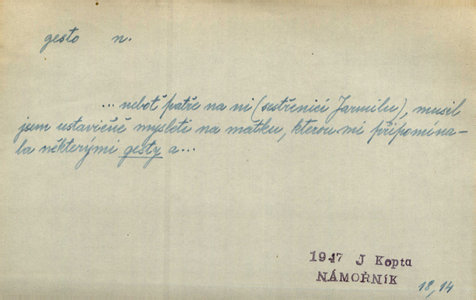 gesto n.
... neboť patře na ni (sestřenici Jarmilu), musil
jsem ustavičně mysleti na matku, kterou mi připomína-
la některými gesty a...
1947 J Kopta
NÁMOŘNÍK
18, 14